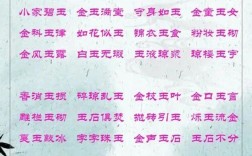 小家碧玉 金玉满堂 守身如玉 金童玉女
金科玉律 如花似玉 锦衣玉食 粉妆玉砌
金风玉露 白玉无瑕 玉液琼浆 琼楼玉宇
香消玉损 碎琼乱玉 金枝玉叶 金口玉言
雕栏玉砌 抛砖引玉 炼玉流金
裹玉敲冰 字字珠玉 金声玉石 玉石不分